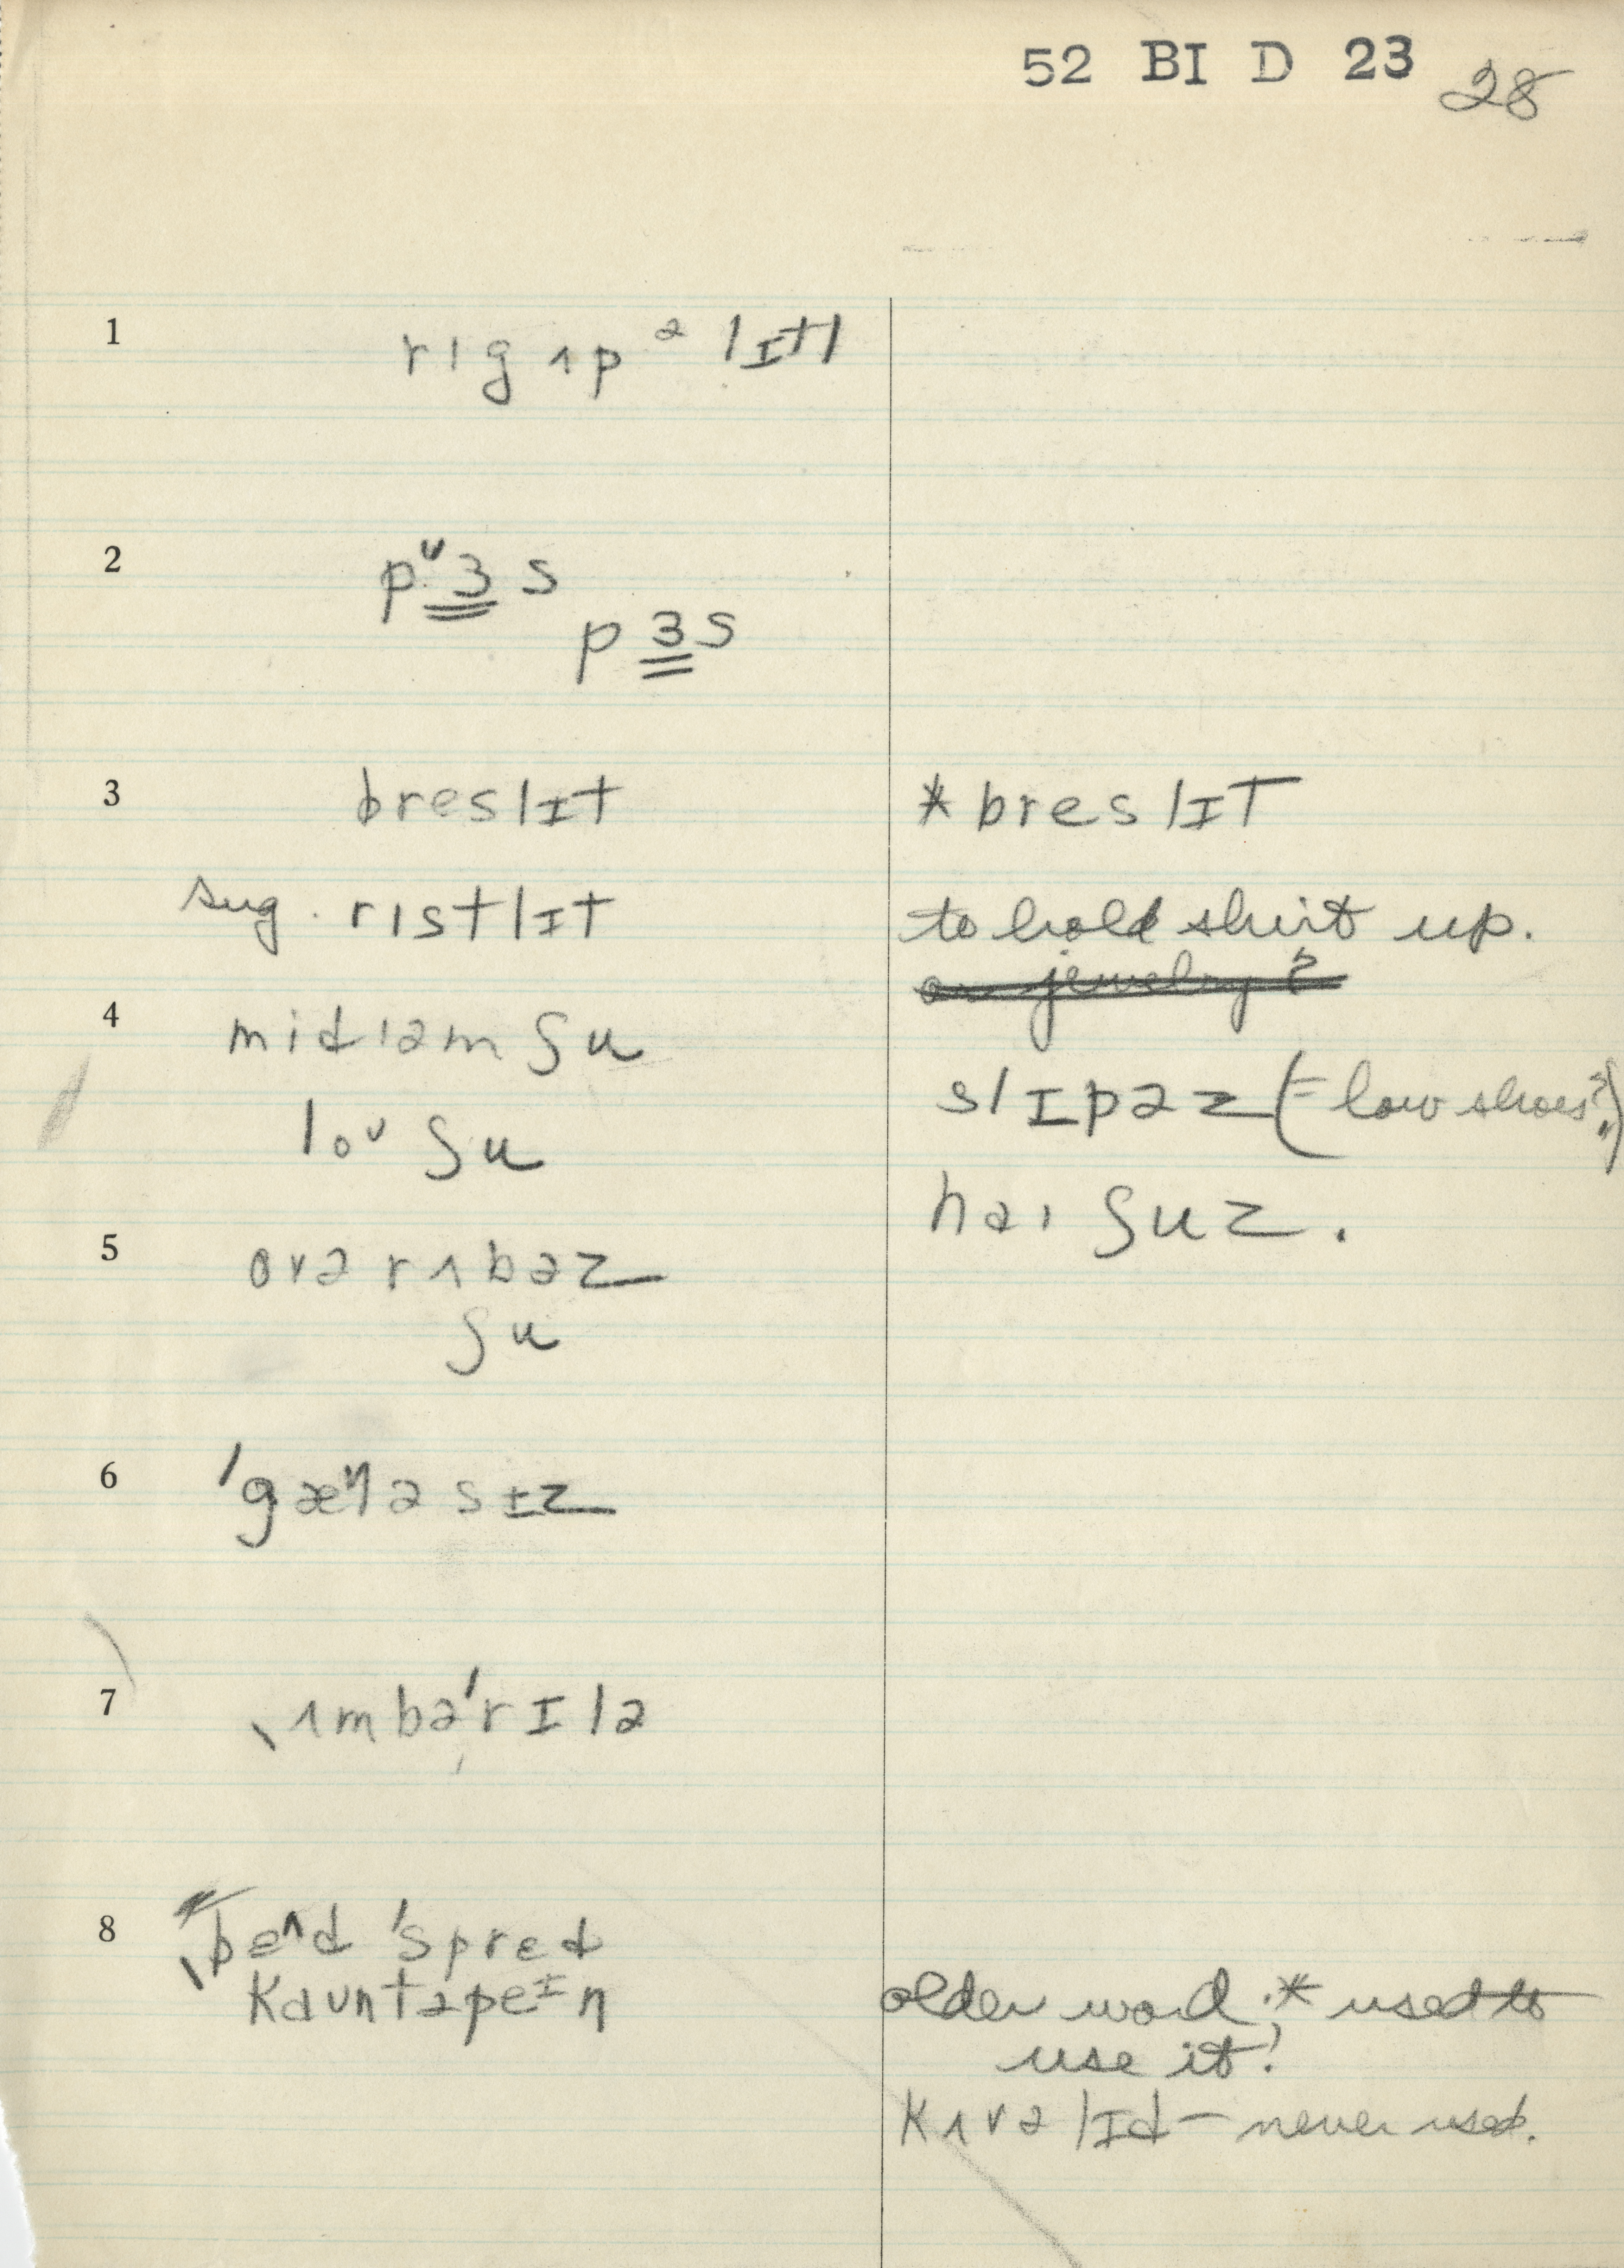 52 BI D 23 28
1 rɪg ʌp ə lɪtl
2 pᶷɜs
pɜs
3 breslɪt *breslɪt
sug. rɪstlɪt to hold shirt up.
or jewelry?
4 midɪəm ʃu
slɪpəz (= low shoes?)
loᶷ ʃu
haɪ ʃuz.
5 ovə rʌbəz
ʃu
6 ˈgæᵑləsɨz
7 ˌʌmbəˈrɪlə
8 ˌbeᶺd ˈspred
kauntəpeᶤn older word; * used to
use it!
kʌvəlɪd – never used.